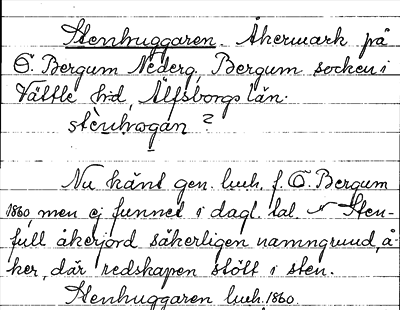 Stenhuggaren. Åkermark på
Ö. Bergum Nederg, Bergum socken i
Vättle h:d, Älfsborgs län.
stènhogan ?
Nu känt gen. luh. f. Ö. Bergum
1860, men ej funnet i dagl. tal. Sten-
full åkerjord säkerligen namngrund, å-
ker, där redskapen stött i sten.
Stenhuggaren luh. 1860.